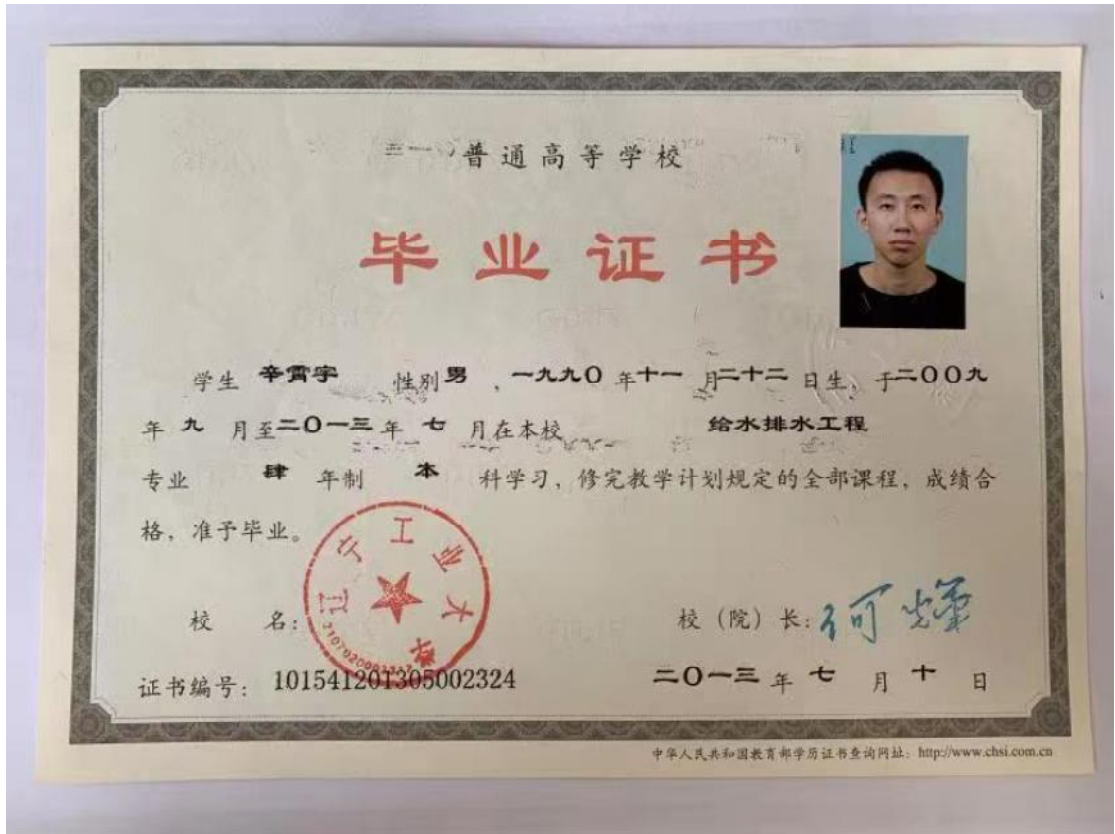 普通高等学校
毕业证书
学生 辛霄宇 性别 男 ，一九九〇 年 十一 月 二十二 日生，于 二〇〇九
年 九 月至 二〇一三 年 七 月在本校 给水排水工程
专业 肆 年制 本 科学习，修完教学计划规定的全部课程，成绩合
格，准予毕业。
辽宁工业大学
校 名：
校（院）长：
证书编号： 101541201305002324
二〇一三 年 七 月 十 日
中华人民共和国教育部学历证书查询网址：http://www.chsi.com.cn